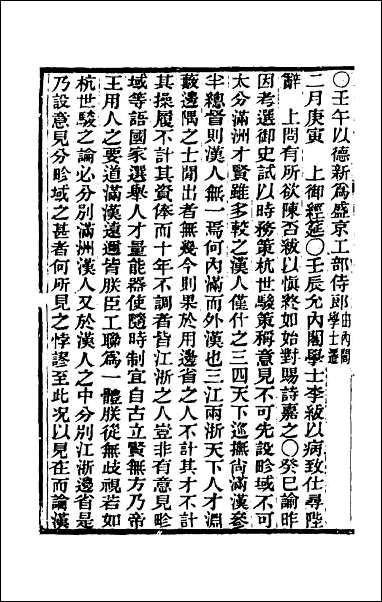 〇壬午以德新爲盛京工部侍郎由內閣學士遷
二月庚寅　上御經筵〇壬辰允內閣學士李紱以病致仕尋陛
辭　上問有所欲陳否紱以愼終如始對賜詩嘉之〇癸巳諭昨
因考選御史試以時務策杭世駿策稱意見不可先設畛域不可
太分滿洲才賢雖多較之漢人僅什之三四天下巡撫尚滿漢參
半總督則漢人無一焉何內滿而外漢也三江兩浙天下人才淵
藪邊隅之士閒出者無幾今則果於用邊省之人不計其才不計
其操履不計其資俸而十年不調者皆江浙之人豈非有意見畛
域等語國家選舉人才量能器使隨時制宜自古立賢無方乃帝
王用人之要道滿漢遠邇皆朕臣工聯爲一體朕從無歧視若如
杭世駿之論必分別滿洲漢人又於漢人之中分別江浙邊省是
乃設意見分畛域之甚者何所見之悖謬至此況以見在而論漢